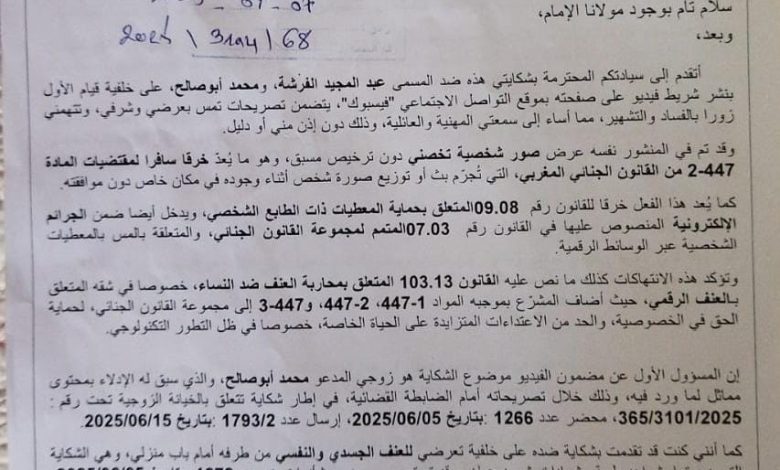 سلام تام بوجود مولانا الإمام،
وبعد،
2025 \ 3194 \ 68
أتقدم إلى سيادتكم المحترمة بشكايتي هذه ضد المسمى عبد المجيد الفرشة، ومحمد أبوصالح، على خلفية قيام الأول
بنشر شريط فيديو على صفحته بموقع التواصل الاجتماعي "فيسبوك"، يتضمن تصريحات تمس بعرضي وشرفي، وتتهمني
زورا بالفساد والتشهير، مما أساء إلى سمعتي المهنية والعائلية، وذلك دون إذن مني أو دليل.
وقد تم في المنشور نفسه عرض صور شخصية تخصني دون ترخيص مسبق، وهو ما يُعدّ خرقا سافرا لمقتضيات المادة
2-447 من القانون الجنائي المغربي، التي تُجرّم بث أو توزيع صورة شخص أثناء وجوده في مكان خاص دون موافقته.
كما يُعد هذا الفعل خرقا للقانون رقم 09.08المتعلق بحماية المعطيات ذات الطابع الشخصي، ويدخل أيضا ضمن الجرائم
الإلكترونية المنصوص عليها في القانون رقم 07.03المتمم لمجموعة القانون الجنائي، والمتعلقة بالمس بالمعطيات
الشخصية عبر الوسائط الرقمية.
وتؤكد هذه الانتهاكات كذلك ما نص عليه القانون 103.13 المتعلق بمحاربة العنف ضد النساء، خصوصا في شقه المتعلق
بـالعنف الرقمي، حيث أضاف المشرّع بموجبه المواد 1-447، 2-447، و3-447 إلى مجموعة القانون الجنائي، لحماية
الحق في الخصوصية، والحد من الاعتداءات المتزايدة على الحياة الخاصة، خصوصا في ظل التطور التكنولوجي.
إن المسؤول الأول عن مضمون الفيديو موضوع الشكاية هو زوجي المدعو محمد أبوصالح، والذي سبق له الإدلاء بمحتوى
مماثل لما ورد فيه، وذلك خلال تصريحاته أمام الضابطة القضائية، في إطار شكاية تتعلق بالخيانة الزوجية تحت رقم :
365/3101/2025، محضر عدد 1266 :بتاريخ 2025/06/05، إرسال عدد 1793/2 :بتاريخ 2025/06/15.
كما أنني كنت قد تقدمت بشكاية ضده على خلفية تعرضي للعنف الجسدي والنفسي من طرفه أمام باب منزلي، وهي الشكاية